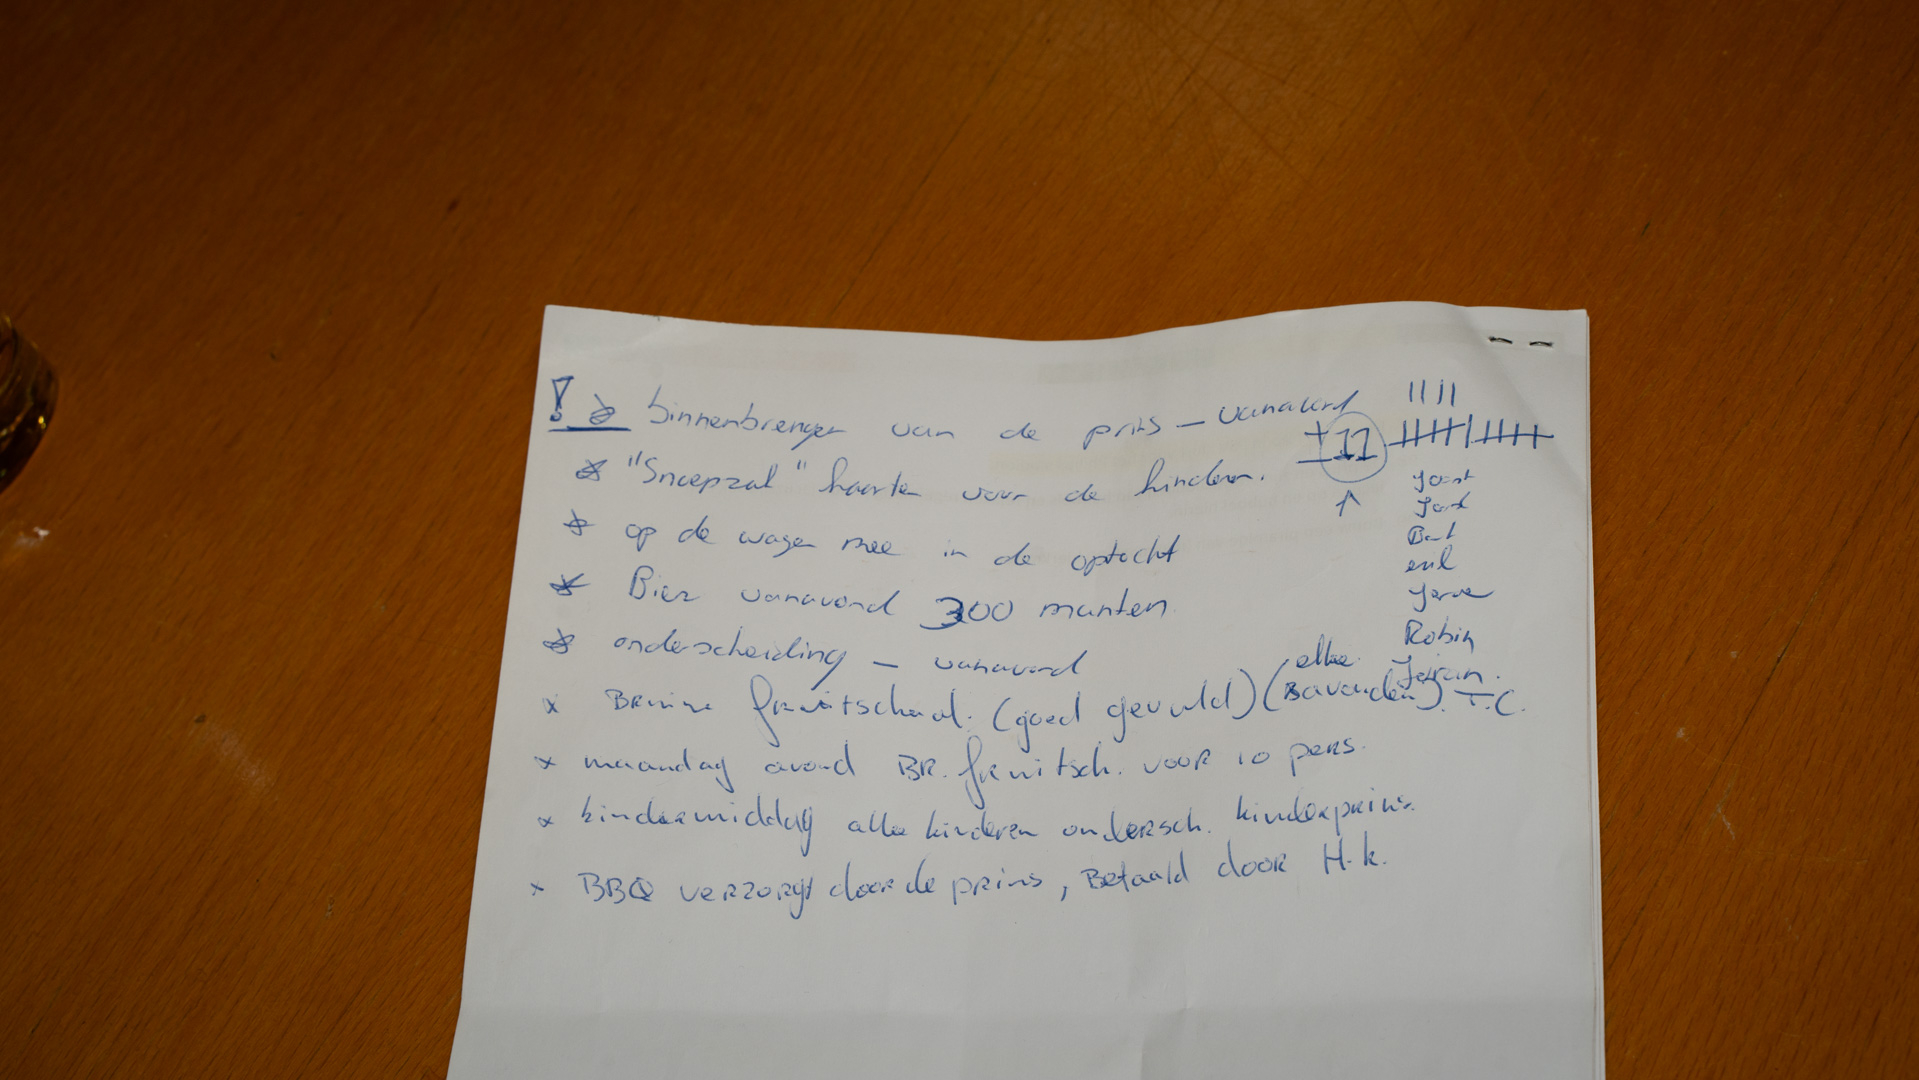 ! binnenbrengen van de prins - vanavond
± 11
"Snoepzak" kaarten voor de kinderen.
op de wagen mee in de optocht
Bier vanavond 300 munten
onderscheiding - vanavond
Bruine fruitschaal. (goed gevuld) (elke avonden). T.C.
x maandag avond BR. fruitsch. voor 10 pers.
x kindermiddag alle kinderen ondersch. kinderprins.
x BBQ verzorgt door de prins, Betaald door H.k.
Joost
Bart
Robin